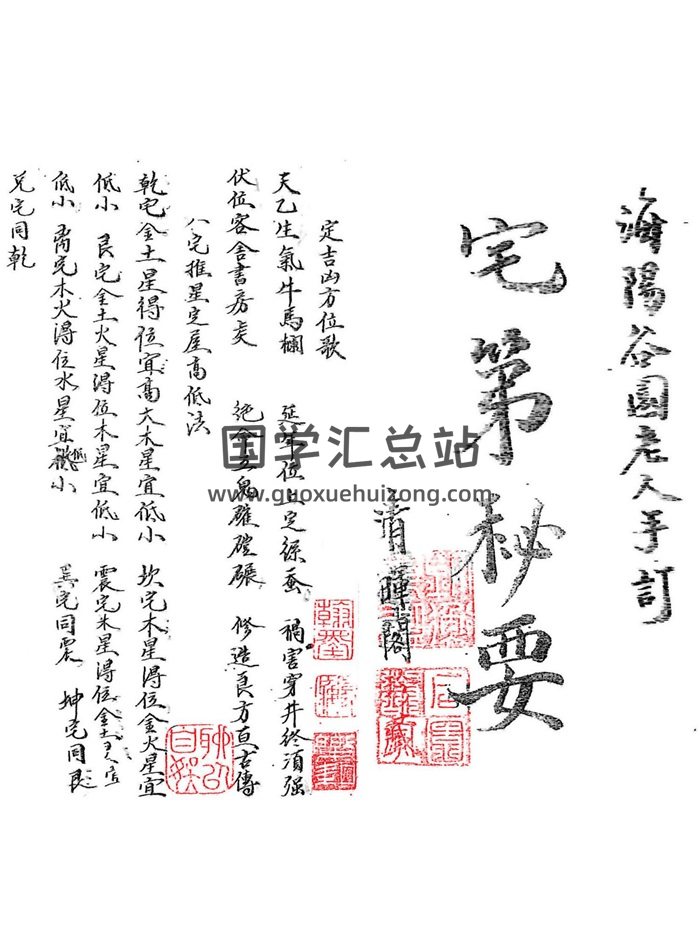 海陽谷園老人手訂
宅第秘要
青暉閣
定吉凶方位歌
天乙生氣牛馬欄 延年位上定蠶 禍害穿井終須强
伏位客舍書房 絶命五鬼碓磑碾 修造良方亘古傳
八宅推星定屋高低法
乾宅金土星得位宜高大木星宜低小 坎宅木星得位金火星宜
低小 艮宅金土火星得位木星宜低小 震宅木星得位金土星宜
低小 离宅木火得位水星宜低小 巽宅同震 坤宅同艮
兑宅同乾
国学汇总站
www.guoxuehuizong.com